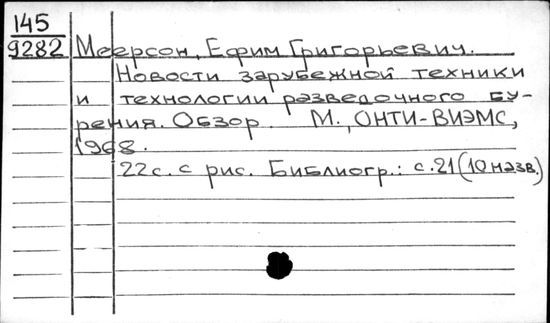 145
9282 Меерсон, Ефим Григорьевич.
Новости зарубежной техники
и технологии разведочного бу-
рения. Обзор. М., ОНТИ-ВИЭМС,
1968.
22с. с рис. Библиогр.: с.21(10 назв.)